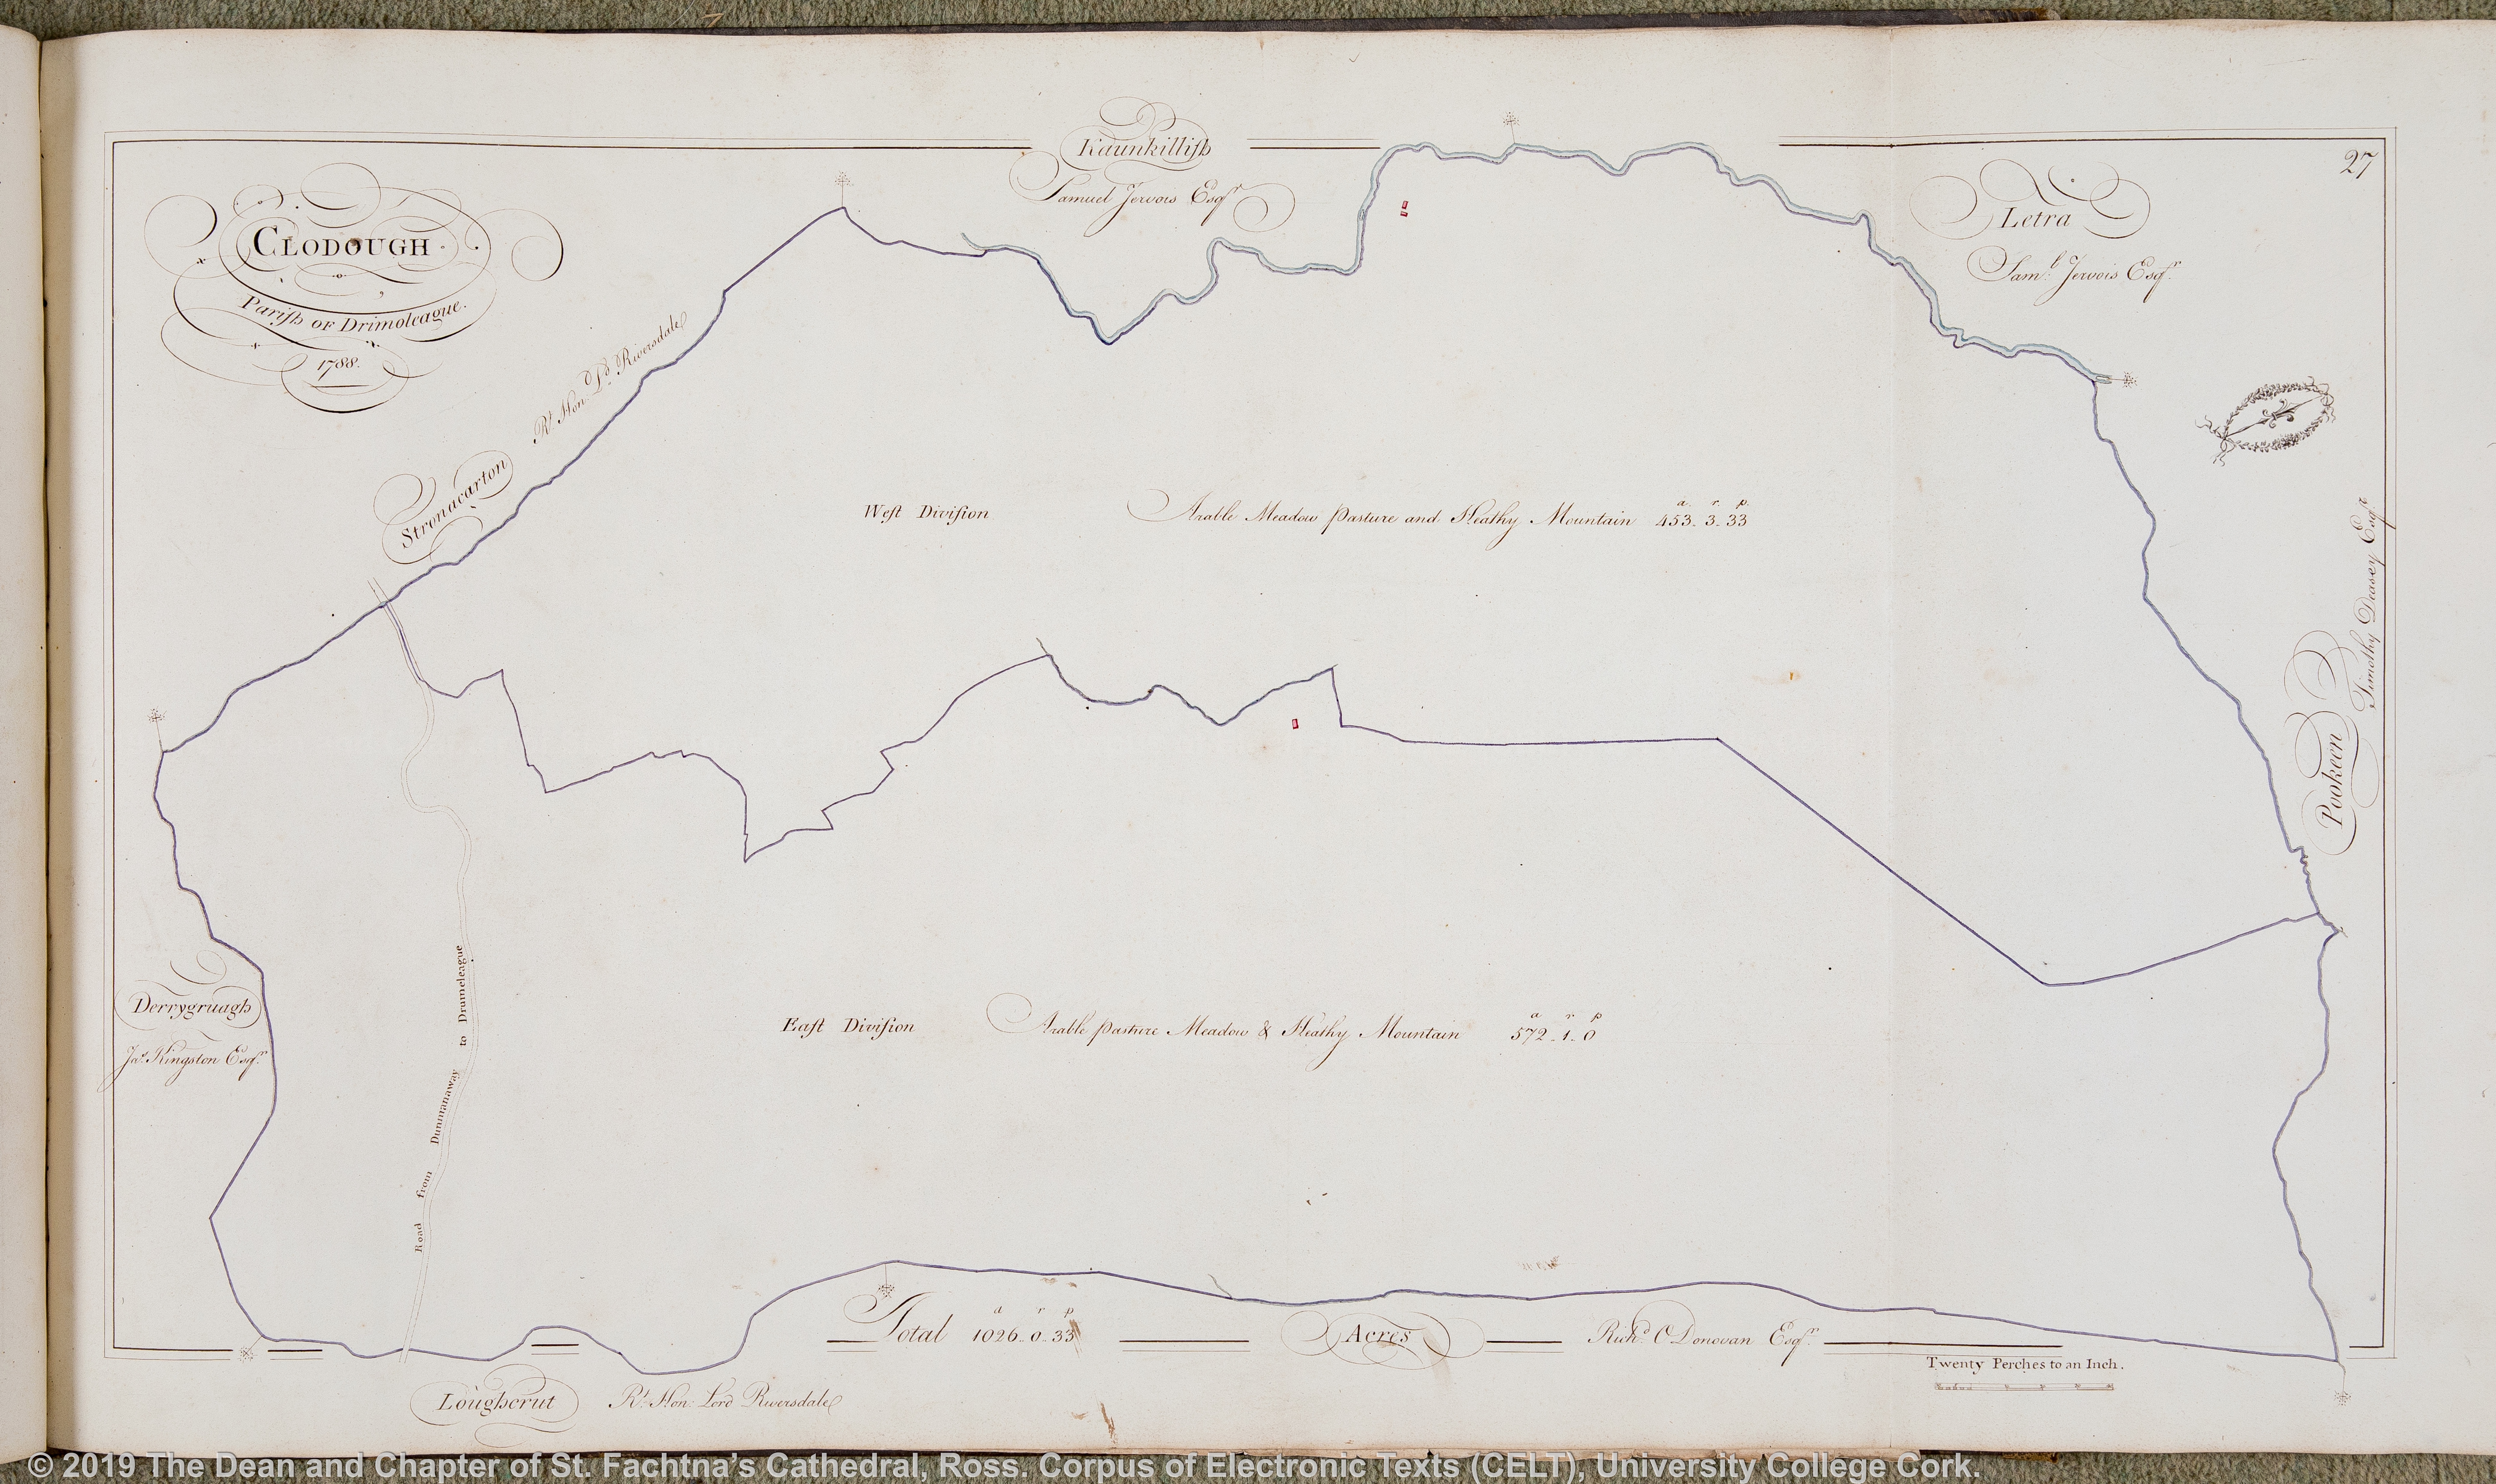 27
CLODOUGH
Parish OF Drimoleague.
1788.
Kaunkillish
Samuel Jervois Esqr
Letra
Saml. Jervois Esqr.
Stronacarton
Rt. Hond. Ld. Riversdale
West Division Arable Meadow pasture and Heathy Mountain
a. r. p.
453. 3. 33
Pookeen
Timothy Deasey Esqr.
Derrygruagh
Jas. Kingston Esqr.
Road from Dunmanaway to Drumeleague
East Division Arable pasture Meadow & Heathy Mountain
a r p
572. 1. 0
Total
a r p
1026. 0. 33
Acres
Richd. O Donovan Esqr.
Twenty Perches to an Inch.
Lougherut
Rt. Hon: Lord Riversdale
© 2019 The Dean and Chapter of St. Fachtna's Cathedral, Ross. Corpus of Electronic Texts (CELT), University College Cork.